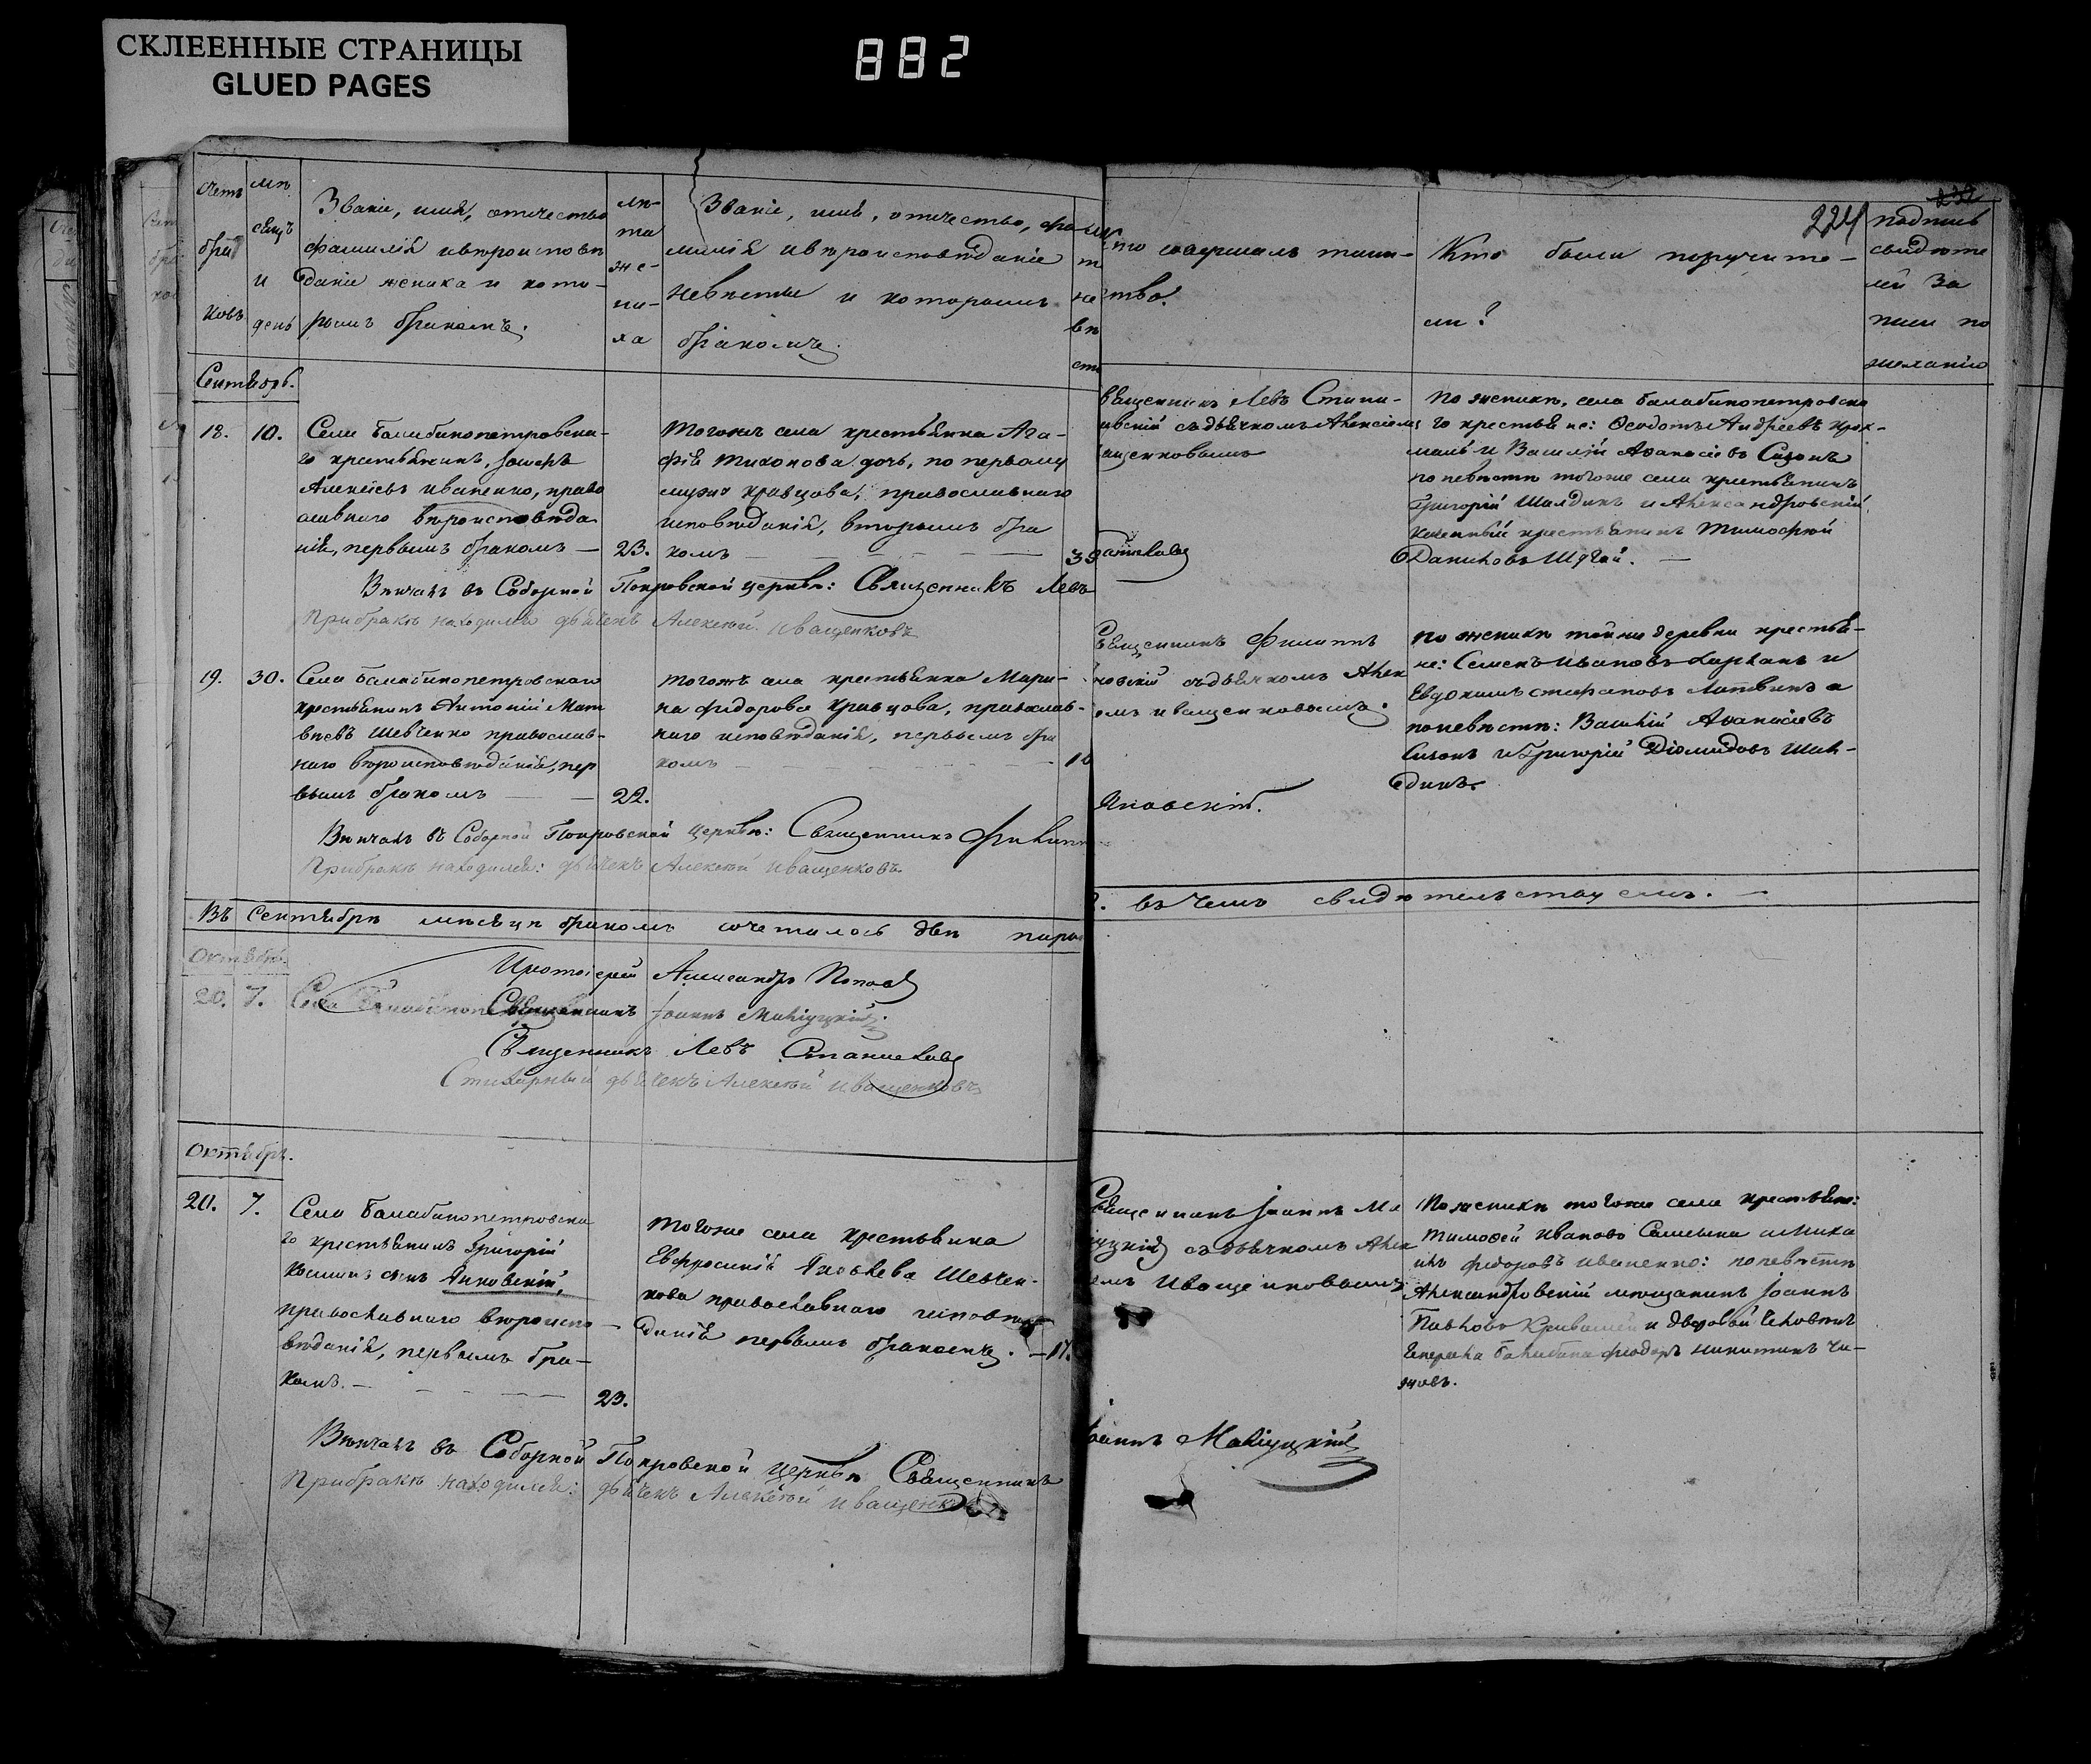 СКЛЕЕННЫЕ СТРАНИЦЫ
GLUED PAGES
882
224
Счетъ браковъ
Мѣсяцъ и день
Званіе, имя, отчество
фамилія и вѣроисповѣ
даніе жениха и кото-
рымъ бракомъ.
лѣ-
та
же-
ни-
ха
Званіе, имя, отчество, фа
милія и вѣроисповѣданіе
невѣсты и которымъ
бракомъ.
то совершалъ таин-
ство.
Кто были поручите-
ли?
подпись
свидѣте
лей за
писи по
желанію
Сентябрь.
18. 10.
Села Балабинопетровска-
го крестьянинъ, Іосифъ
Алексѣевъ Иваненко, право
славнаго вѣроисповѣда
нія, первымъ бракомъ — 23.
Тогожъ села крестьянка Ага-
фія Тихонова дочь, по первому
мужу Кравцова, православнаго
исповѣданія, вторымъ бра
комъ
вященникъ Левъ Стани-
съ дьячкомъ Алексіемъ
ащенковымъ
По женихѣ, села Балабинопетровска
го крестьяне: Ѳеодотъ Андреевъ
и Василій Аѳанасіевъ Сизонъ
по невѣстѣ тогоже села крестьянинъ
Григорій Шалдинъ и Александровскій
казенный крестьянинъ Тимофей
Даниловъ
Вѣнчалъ въ Соборной Покровской церкви: Священникъ Левъ
При бракѣ находился дьячекъ Алексѣй Иващенковъ
19. 30.
Села Балабинопетровскаго
крестьянинъ Антоній Мат
вѣевъ Шевченко православ-
наго вѣроисповѣданія, пер
вымъ бракомъ — 22.
Тогожъ села крестьянка Мари-
на Федорова Кравцова, православ-
наго исповѣданія, первымъ бра
комъ
Священникъ Филиппъ
новскій съ дьячкомъ Алек
емъ Иващенковымъ.
По женихѣ тойже деревни крестья-
не: Семенъ Ивановъ и
Евдокимъ Стефановъ Литвинъ а
по невѣстѣ: Василій Аѳанасіевъ
Сизонъ и Григорій Діомидовъ Шал-
динъ.
Вѣнчалъ въ Соборной Покровской церкви: Священникъ Филиппъ
Яновскій.
При бракѣ находился: дьячекъ Алексѣй Иващенковъ.
Въ Сентябрѣ мѣсяцѣ бракомъ сочеталось двѣ пары
въ чемъ свидѣтельствуемъ.
Октябрь.
20. 7. Села
Протоіерей Александръ Поповъ
Священникъ Іоаннъ
Священникъ Левъ
дьячекъ Алексѣй Иващенковъ
Октябрь.
20. 7.
Села Балабинопетровска
го крестьянинъ Григорій
Козминъ сынъ Яновскій,
православнаго вѣроиспо-
вѣданія, первымъ бра-
комъ. — 23.
Тогоже села крестьянка
Евфросинія Яковлева Шевчен-
кова православнаго исповѣ
данія первымъ бракомъ. — 17.
Священникъ Іоаннъ Ма
съ дьячкомъ Алек
емъ Иващенковымъ
По женихѣ тогоже села крестьяне:
Тимоѳей Ивановъ и Миха
илъ Федоровъ Иваненко: по невѣстѣ
Александровскій мѣщанинъ Іоаннъ
Павловъ и дворовый человѣкъ
Генерала Балабина Феодоръ Никитинъ Чи-
жовъ.
Вѣнчалъ въ Соборной Покровской церкви Священникъ
Іоаннъ
При бракѣ находился: дьячекъ Алексѣй Иващенковъ